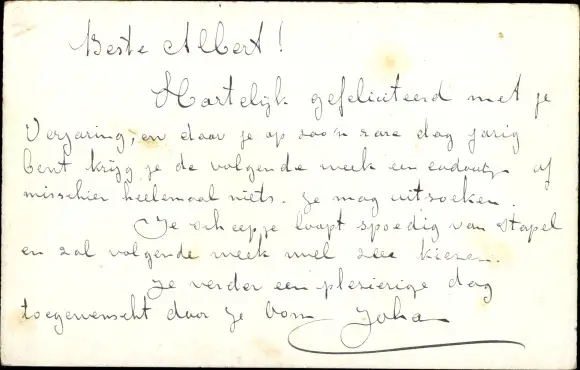 Beste Albert!
Hartelijk gefeliciteerd met je
Verjaring, en daar je op zoo'n rare dag jarig
bent krijg je de volgende week een cadeautje of
misschien heelemaal niets. Je mag uitzoeken.
Je scheepje loopt spoedig van stapel
en zal volgende week wel zee kiezen.
Je verder een plezierige dag
toegewenscht door je Oom Johan